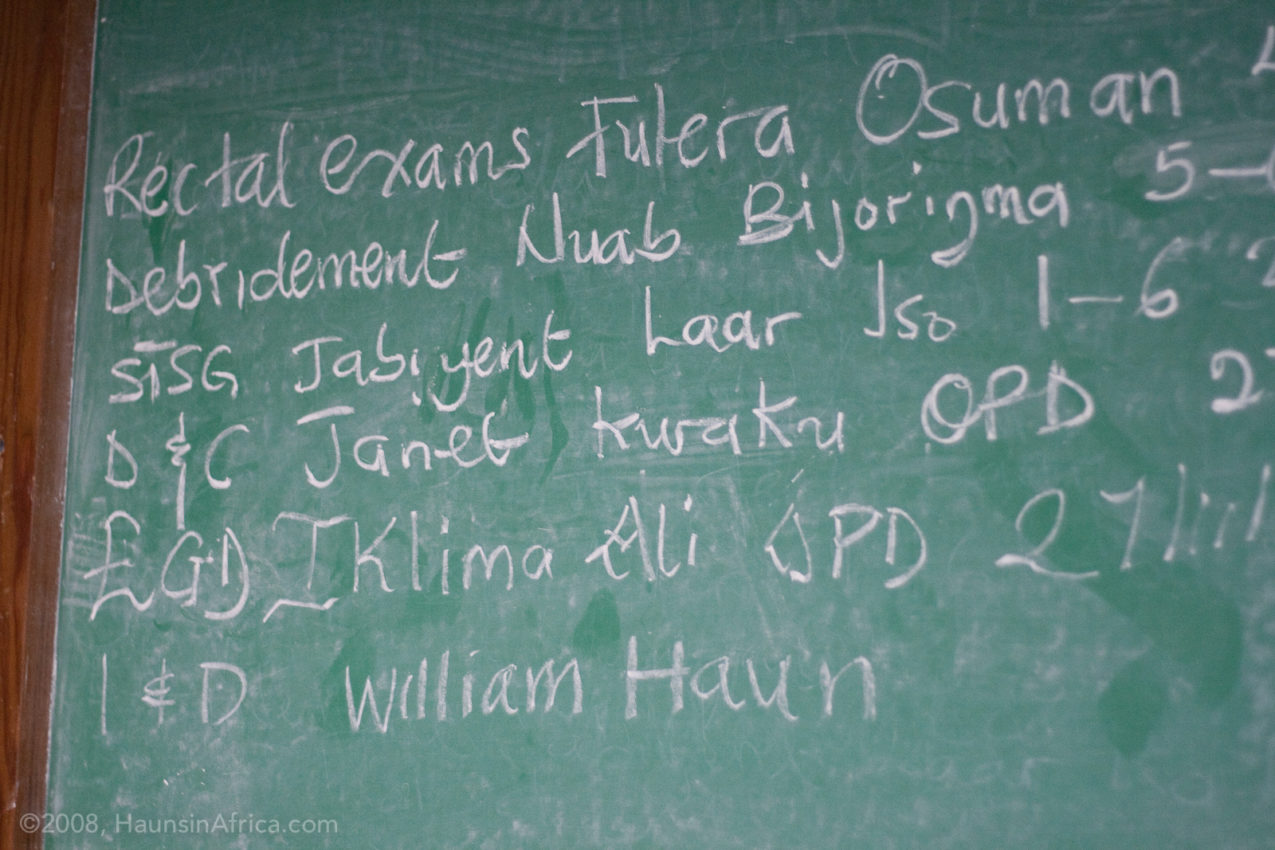 Rectal exams Futera Osuman
Debridement Nuab Bijorigma 5-
STSG Jabiyent Laar Iso 1-6
D & C Janet Kwaku OPD 2
EGD IKlima Ali OPD 27
I & D William Haun
©2008, HaunsinAfrica.com